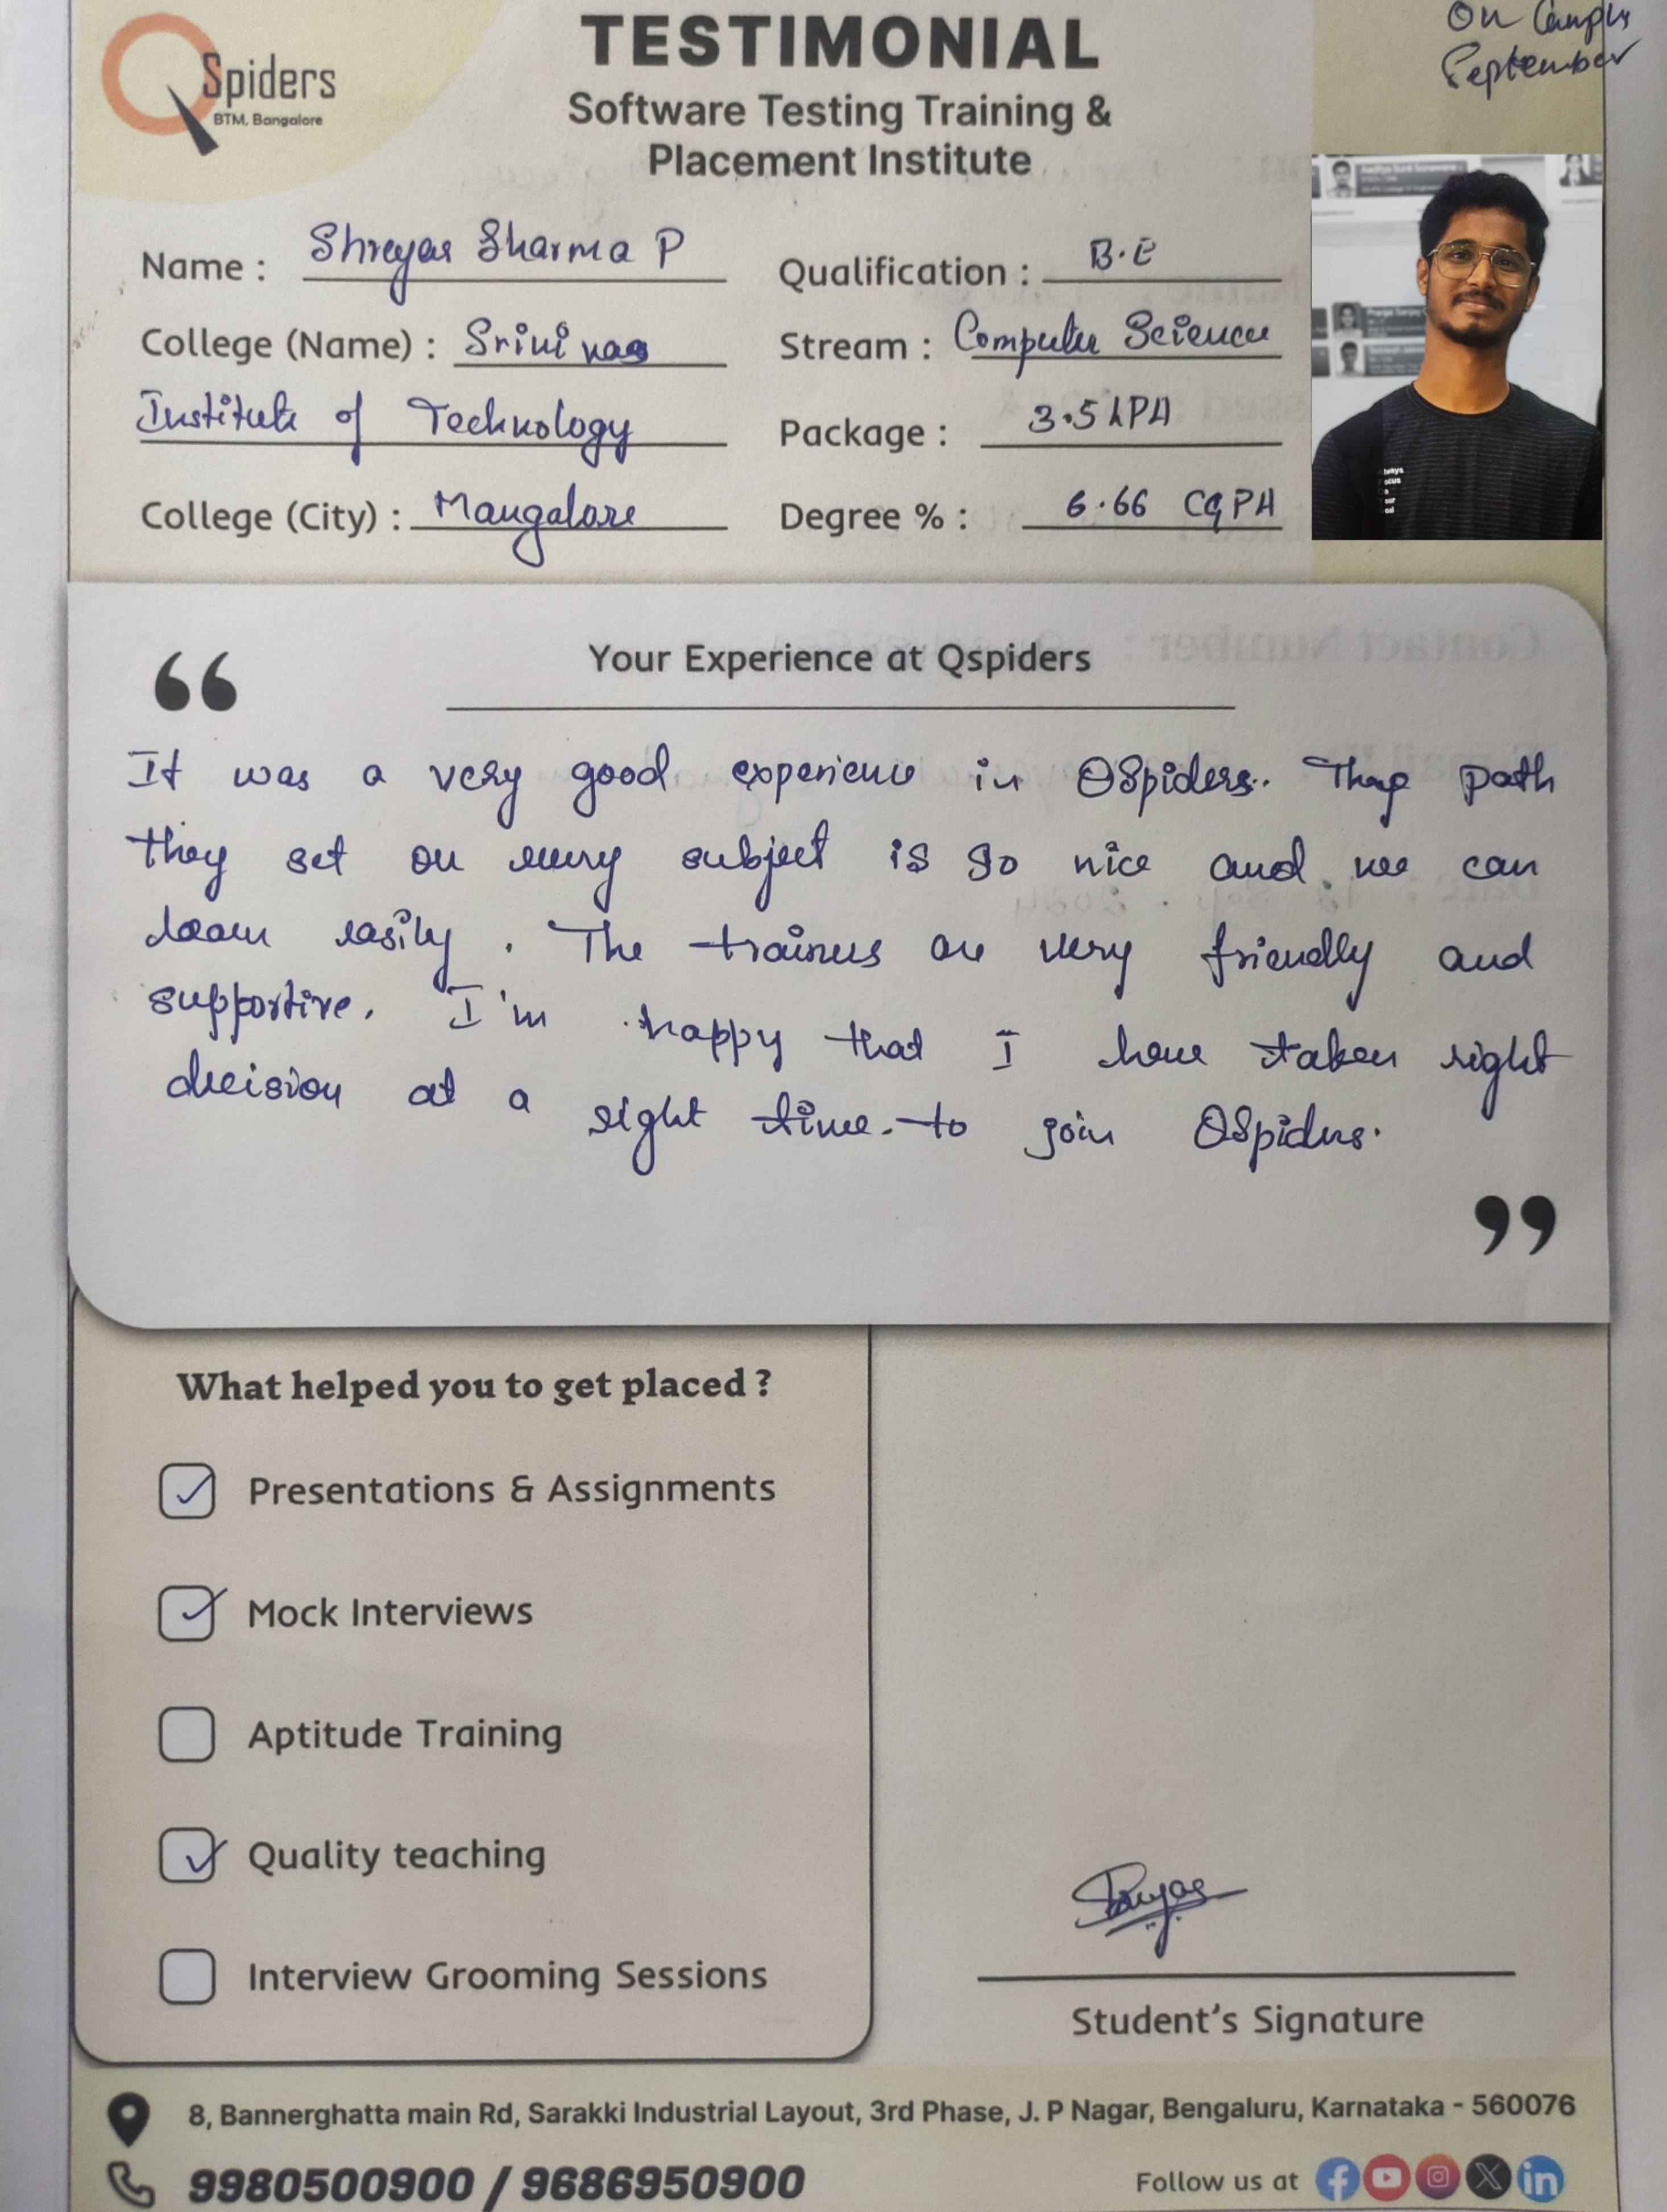 On Campus
September
QSpiders
BTM, Bangalore
TESTIMONIAL
Software Testing Training &
Placement Institute
Name : Shreyas Sharma P
Qualification : B.E
College (Name) : Srinivas
Stream : Computer Science
Institute of Technology
Package : 3.5 LPA
College (City) : Mangalore
Degree % : 6.66 CGPA
“
Your Experience at Qspiders
It was a very good experience in QSpiders. path
they set on every subject is so nice and we can
learn easily. The trainers are very friendly and
supportive. I'm happy that I have taken right
decision at a right time to join QSpiders.
”
What helped you to get placed ?
Presentations & Assignments
Mock Interviews
Aptitude Training
Quality teaching
Interview Grooming Sessions
Shreyas
Student’s Signature
8, Bannerghatta main Rd, Sarakki Industrial Layout, 3rd Phase, J. P Nagar, Bengaluru, Karnataka - 560076
9980500900 / 9686950900
Follow us at